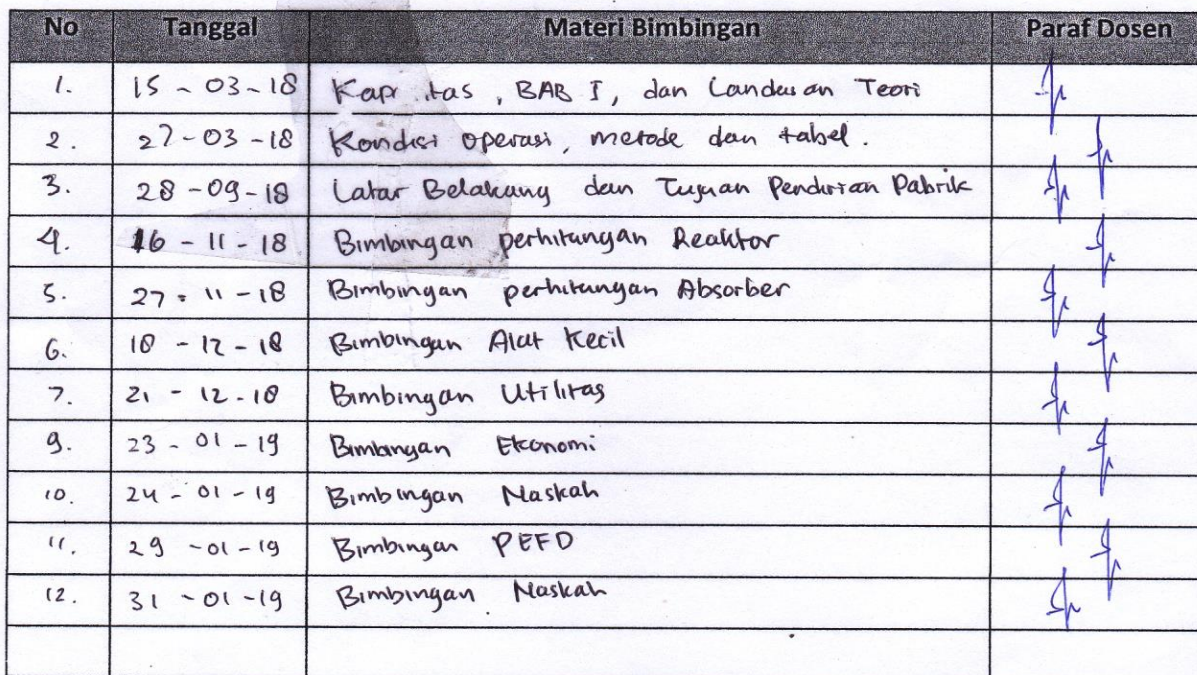 No Tanggal Materi Bimbingan Paraf Dosen
1. 15 - 03 - 18 , BAB I, dan Landasan Teori
2. 27 - 03 - 18 Kondisi operasi, metode dan tabel.
3. 28 - 09 - 18 Latar Belakang dan Tujuan Pendirian Pabrik
4. 16 - 11 - 18 Bimbingan perhitungan Reaktor
5. 27 - 11 - 18 Bimbingan perhitungan Absorber
6. 18 - 12 - 18 Bimbingan Alat Kecil
7. 21 - 12 - 18 Bimbingan Utilitas
9. 23 - 01 - 19 Bimbingan Ekonomi
10. 24 - 01 - 19 Bimbingan Naskah
11. 29 - 01 - 19 Bimbingan PEFD
12. 31 - 01 - 19 Bimbingan Naskah